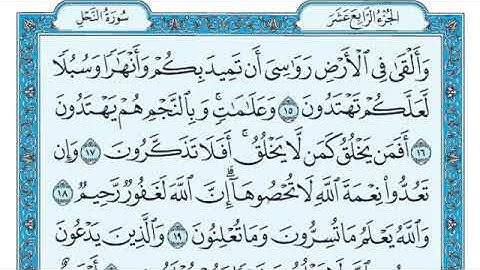 الجزء الرابع عشر
سورة النحل
وَأَلْقَىٰ فِي الْأَرْضِ رَوَاسِيَ أَن تَمِيدَ بِكُمْ وَأَنْهَارًا وَسُبُلًا
لَّعَلَّكُمْ تَهْتَدُونَ ١٥ وَعَلَامَاتٍ ۚ وَبِالنَّجْمِ هُمْ يَهْتَدُونَ
١٦ أَفَمَن يَخْلُقُ كَمَن لَّا يَخْلُقُ ۗ أَفَلَا تَذَكَّرُونَ ١٧ وَإِن
تَعُدُّوا نِعْمَةَ اللَّهِ لَا تُحْصُوهَا ۗ إِنَّ اللَّهَ لَغَفُورٌ رَّحِيمٌ ١٨
وَاللَّهُ يَعْلَمُ مَا تُسِرُّونَ وَمَا تُعْلِنُونَ ١٩ وَالَّذِينَ يَدْعُونَ